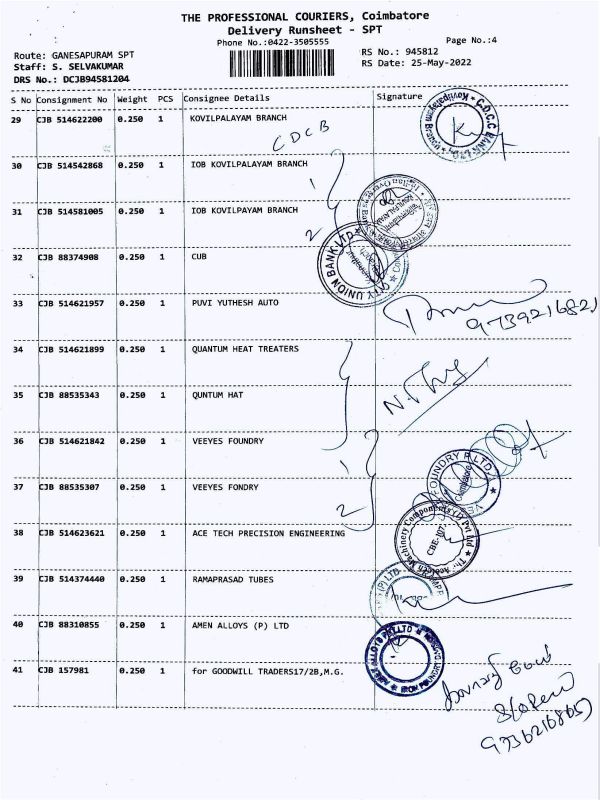 THE PROFESSIONAL COURIERS, Coimbatore
Delivery Runsheet - SPT
Phone No.:0422-3505555
Page No.:4
Route: GANESAPURAM SPT
RS No.: 945812
Staff: S. SELVAKUMAR
RS Date: 25-May-2022
DRS No.: DCJB94581204
S No Consignment No Weight PCS Consignee Details Signature
29 CJB 514622200 0.250 1 KOVILPALAYAM BRANCH
CDCB
30 CJB 514542868 0.250 1 IOB KOVILPALAYAM BRANCH
1
31 CJB 514581005 0.250 1 IOB KOVILPAYAM BRANCH
2
32 CJB 88374908 0.250 1 CUB
CITY UNION BANK LTD
33 CJB 514621957 0.250 1 PUVI YUTHESH AUTO
9739216821
34 CJB 514621899 0.250 1 QUANTUM HEAT TREATERS
35 CJB 88535343 0.250 1 QUNTUM HAT
36 CJB 514621842 0.250 1 VEEYES FOUNDRY
1
FOUNDRY P LTD
Coimbatore
37 CJB 88535307 0.250 1 VEEYES FONDRY
2
38 CJB 514623621 0.250 1 ACE TECH PRECISION ENGINEERING
Machinery Components (I) Pvt Ltd
CBE-107.
39 CJB 514374440 0.250 1 RAMAPRASAD TUBES
(P) LTD.
40 CJB 88310855 0.250 1 AMEN ALLOYS (P) LTD
41 CJB 157981 0.250 1 for GOODWILL TRADERS17/2B,M.G.